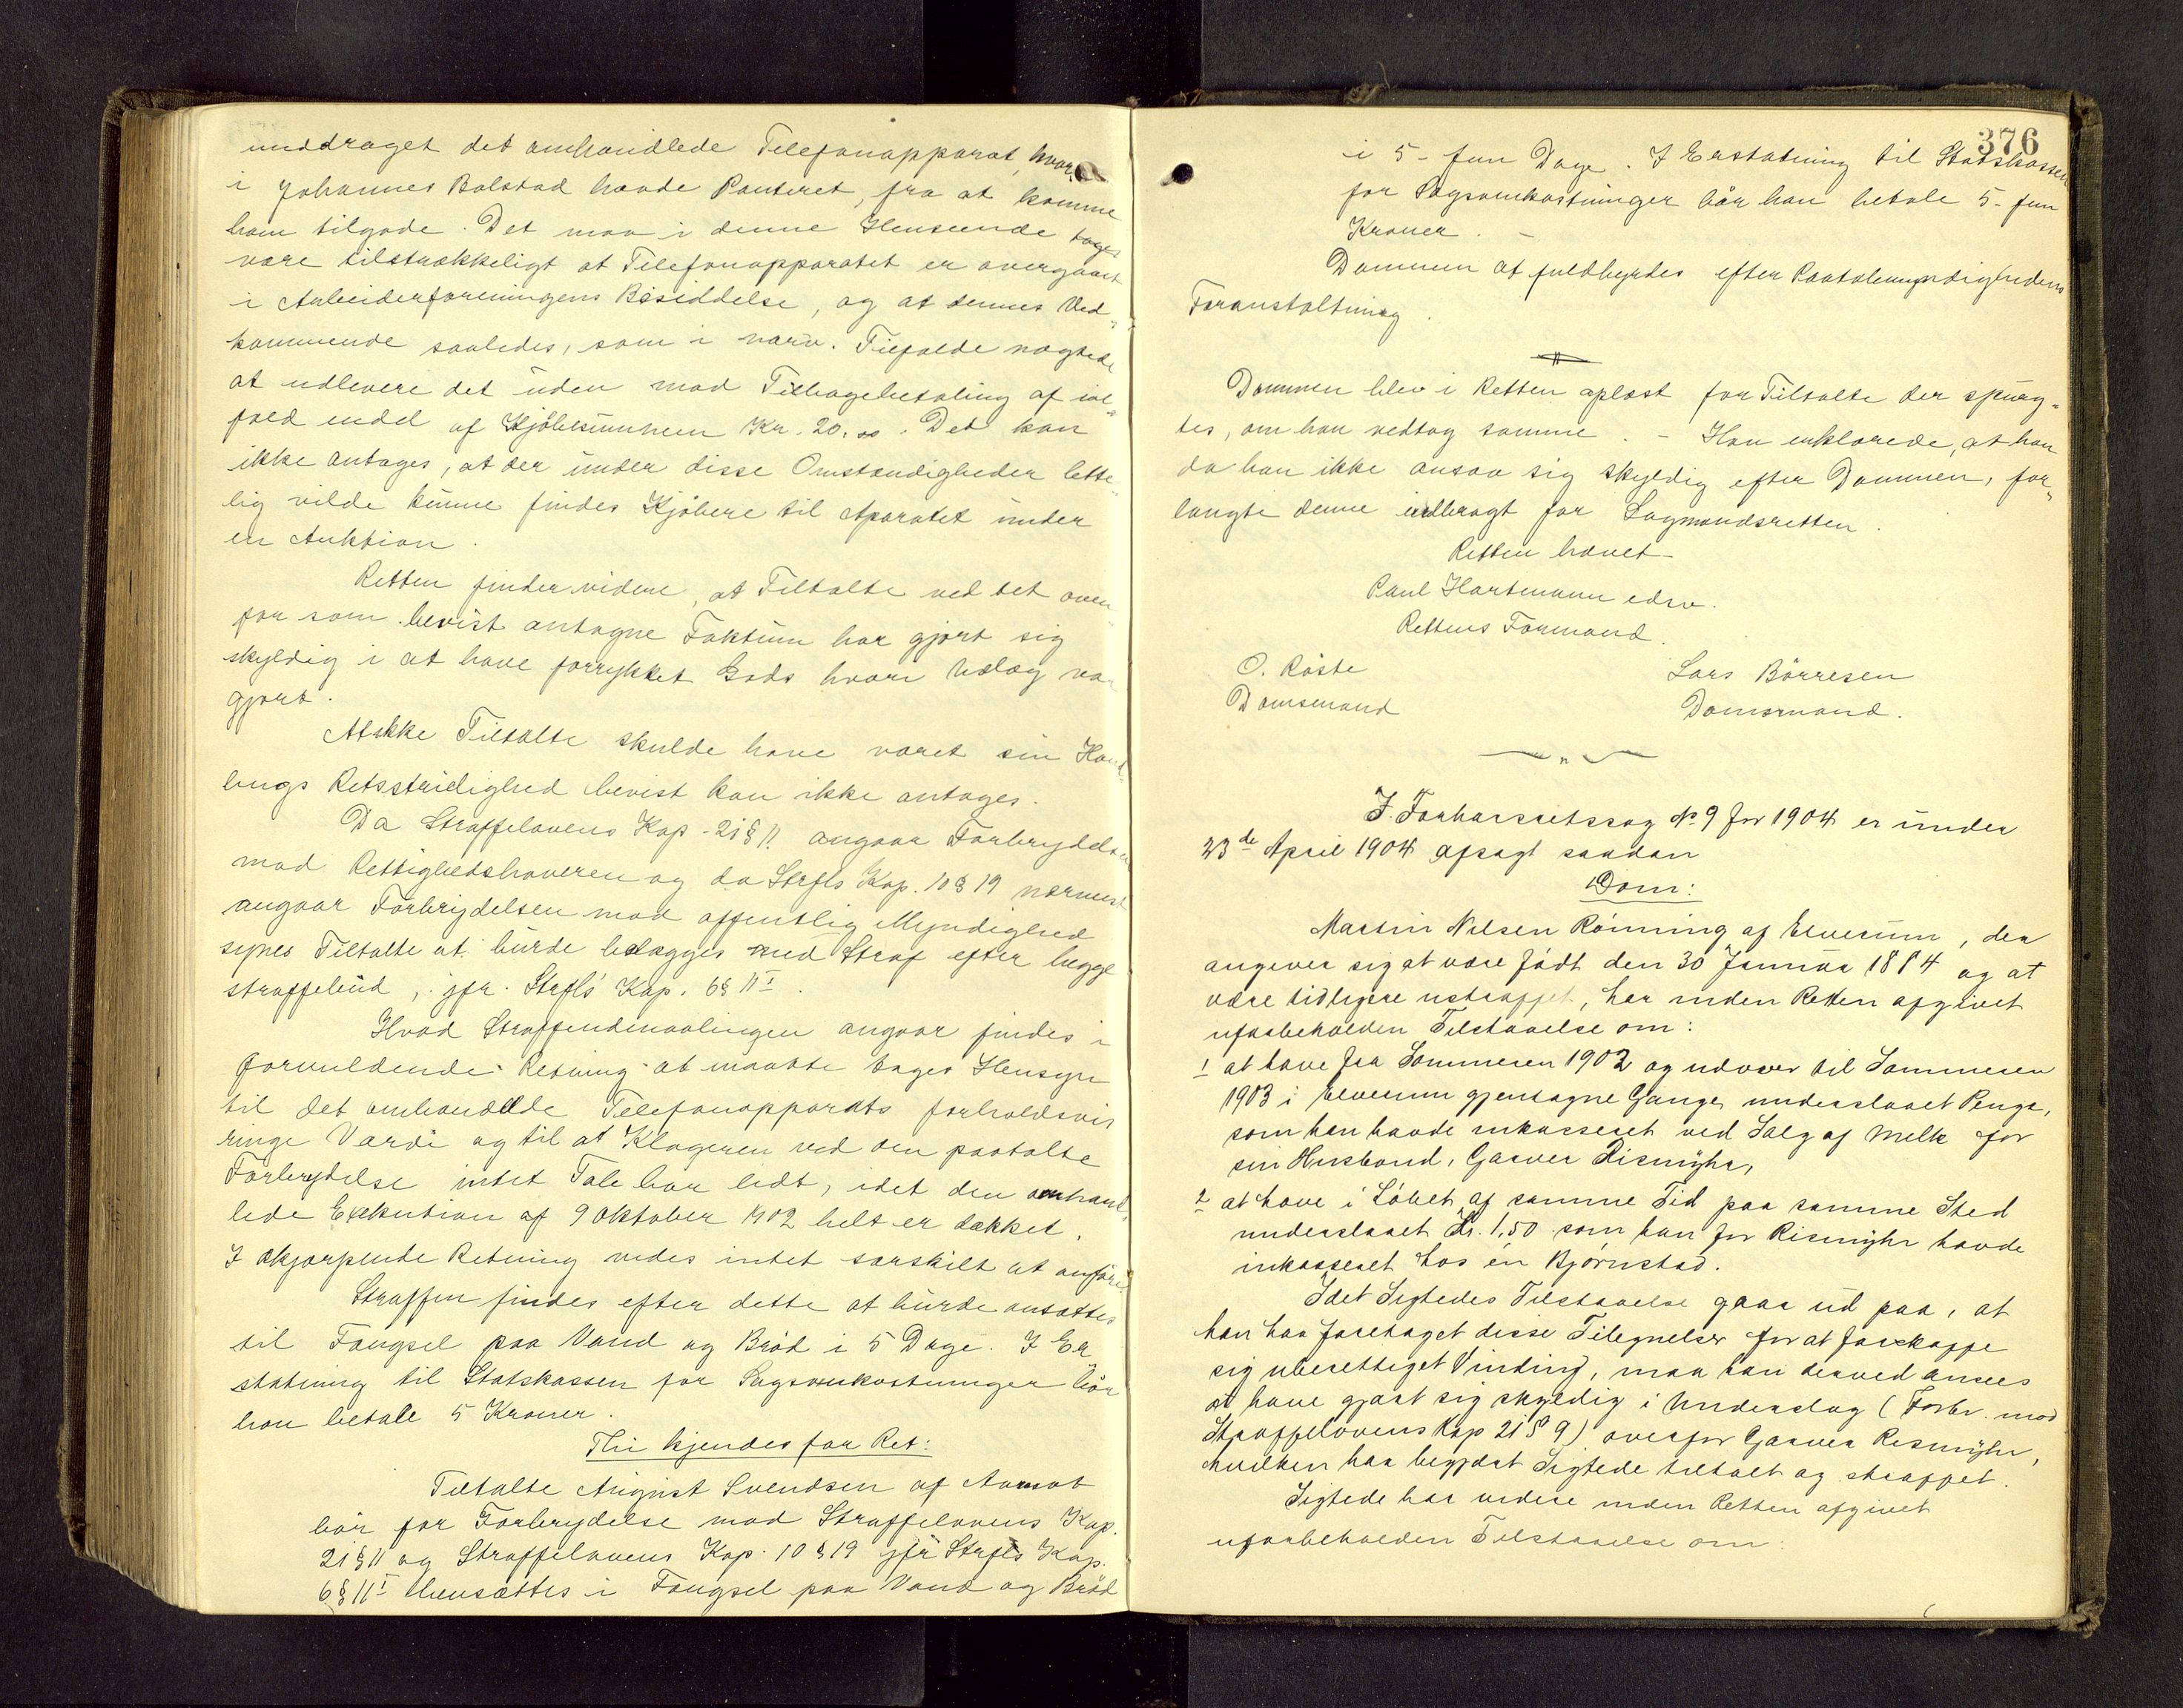 unddraget det omhandlede Telefonapparat, hvor¬
i Johannes Bolstad havde Panteret, fra at komme
ham tilgode. Det maa i denne Henseende tages
være tilstrækkeligt at Telefonapparatet er overgaaet
i Arbeiderforeningens Besiddelse, og at dennes Ved¬
kommende saaledes, som i nærv. Tilfælde nægtede
at udlevere det uden mod Tilbagebetaling af ial¬
fald endel af Kjöbesummen Kr. 20.00. Det kan
ikke antages, at der under disse Omstændigheder lette¬
lig vilde kunne findes Kjöbere til Aparatet under
en Auktion.
Retten finder videre, at Tiltalte ved det oven¬
for som bevist antagne Faktum har gjort sig
skyldig i at have forrykket Gods hvori Udlæg var
gjort.
At ikke Tiltalte skulde have været sin Hand¬
lings Retsstridighed bevist kan ikke antages.
Da Straffelovens Kap. 21 § 11 angaar Forbrydelsen
mod Rettighedshaveren og da Strfls Kap. 10 § 19 nærmest
angaar Forbrydelsen mod offentlig Myndighed
synes Tiltalte at burde belægges med Straf efter begge
straffebud, jfr. Strfls Kap. 6 § 11 I.
Hvad Straffeudmaalingen angaar findes i
formildende Retning at maatte tages Hensyn
til det omhandlede Telefonapparats forholdsvis
ringe Værdi og til at Klageren ved den paatalte
Forbrydelse intet Tab har lidt, idet den omhand¬
lede Exekution af 9 Oktober 1902 helt er dækket.
I skjærpende Retning vides intet særskilt at anføre.
Straffen findes efter dette at burde ansættes
til Fængsel paa Vand og Bröd i 5 Dage. I Er
statning til Statskassen for Sagsomkostninger bör
han betale 5 Kroner.
Thi kjendes for Ret:
Tiltalte August Svendsen af Aamot
bör for Forbrydelse mod Straffelovens Kap.
21 § 11 og Straffelovens Kap. 10 § 19 jfr Strfls Kap.
6 § 11 I hensættes i Fængsel paa Vand og Bröd
376
i 5 - fem Dage. I Erstatning til Statskassen
for Sagsomkostninger bör han betale 5 - fem
Kroner. -
Dommen at fuldbyrdes efter Paatalemyndighedens
Foranstaltning.
Dommen blev i Retten oplæst for Tiltalte der spurg¬
tes, om han vedtog samme. - Han erklærede, at han
da han ikke ansaa sig skyldig efter Dommen, for¬
langte denne indbragt for Lagmandsretten.
Retten hævet
Paul Hartmann edsv.
Rettens Formand.
O. Röste
Lars Börresen
Domsmand
Domsmand.
I Forhørsretssag No 9 for 1904 er under
23de April 1904 afsagt saadan
Dom:
Martin Nilsen Rönning af Elverum, der
angiver sig at være födt den 30 Januar 1884 og at
være tidligere ustraffet, har inden Retten afgivet
uforbeholden Tilstaaelse om:
1 at have fra Sommeren 1902 og udover til Sommeren
1903 i Elverum gjentagne Gange underslaaet Penge,
som han havde inkasseret ved Salg af Melk for
sin Husbond, Garver Rismyhr,
2 at have i Löbet af samme Tid paa samme Sted
underslaaet Kr. 1,50 som han for Rismyhr havde
inkasseret hos en Bjørnstad.
Idet Sigtedes Tilstaaelse gaar ud paa, at
han har foretaget disse Tilegnelser for at forskaffe
sig uberettiget Vinding, maa han derved ansees
at have gjort sig skyldig i Underslag (Forbr. mod
Straffelovens Kap 21 § 9) overfor Garver Rismyhr,
hvilken har begjært Sigtede tiltalt og straffet.
Sigtede har videre inden Retten afgivet
uforbeholden Tilstaaelse om: